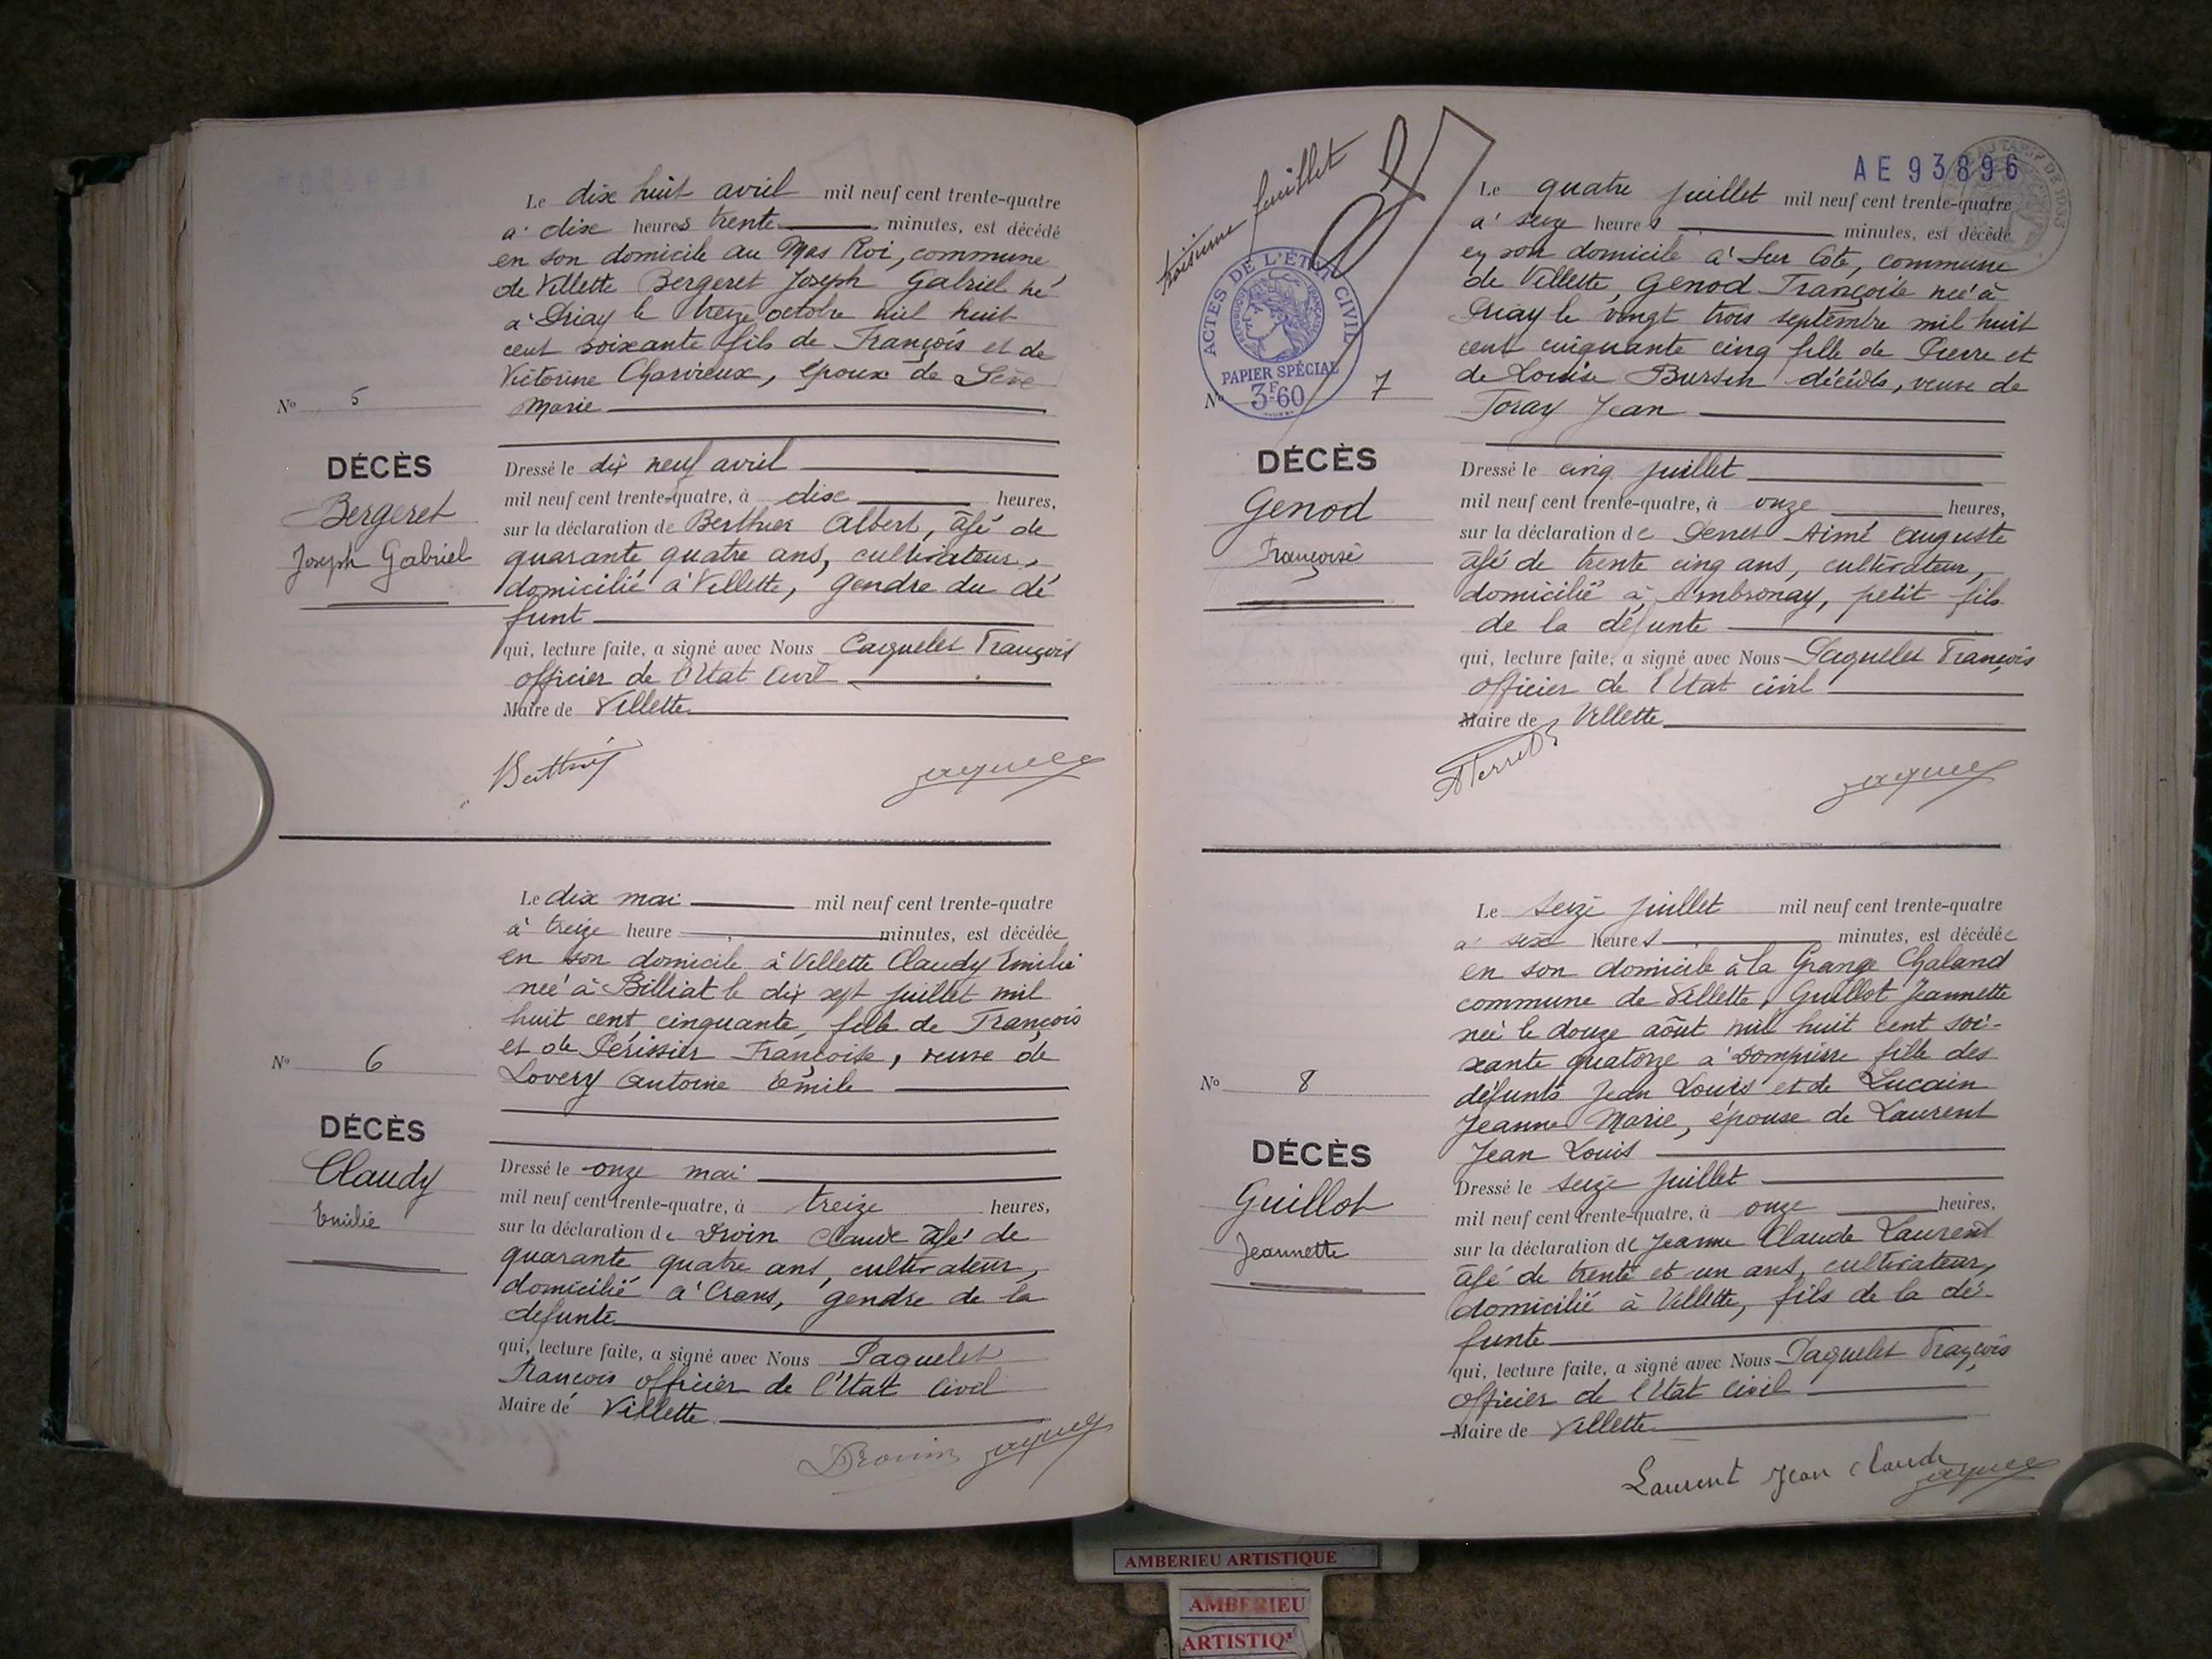 Le dix huit avril mil neuf cent trente-quatre
à dix heures trente minutes, est décédé
en son domicile au Mas Roi, commune
de Villette Bergeret Joseph Gabriel né
à Priay le treize octobre mil huit
cent soixante fils de François et de
Victorine Charvieux, époux de Sève
Marie
No 5
DÉCÈS
Bergeret
Joseph Gabriel
Dressé le dix neuf avril
mil neuf cent trente-quatre, à dix heures,
sur la déclaration de Berthier Albert, âgé de
quarante quatre ans, cultivateur,
domicilié à Villette, gendre du dé
funt
qui, lecture faite, a signé avec Nous Paquelet François
officier de l'Etat Civil
Maire de Villette
Le dix mai mil neuf cent trente-quatre
à treize heure minutes, est décédée
en son domicile à Villette Claudy Emilie
née à Billiat le dix sept juillet mil
huit cent cinquante, fille de François
et de Périssier Françoise, veuve de
Lovery Antoine Emile
No 6
DÉCÈS
Claudy
Emilie
Dressé le onze mai
mil neuf cent trente-quatre, à treize heures,
sur la déclaration de Droin Claude âgé de
quarante quatre ans, cultivateur,
domicilié à Crans, gendre de la
défunte
qui, lecture faite, a signé avec Nous Paquelet
François officier de l'Etat Civil
Maire de Villette
troisième feuillet
AE 93896
ACTES DE L'ÉTAT CIVIL
PAPIER SPÉCIAL
3F60
Le quatre juillet mil neuf cent trente-quatre
à seize heures minutes, est décédé
en son domicile à Sur Côte, commune
de Villette, Genod Françoise née à
Priay le vingt trois septembre mil huit
cent cinquante cinq fille de Pierre et
de Louise Bursin décédés, veuve de
Toray Jean
No 7
DÉCÈS
Genod
Françoise
Dressé le cinq juillet
mil neuf cent trente-quatre, à onze heures,
sur la déclaration de Perret Aimé Auguste
âgé de trente cinq ans, cultivateur,
domicilié à Ambronay, petit fils
de la défunte
qui, lecture faite, a signé avec Nous Paquelet François
officier de l'Etat civil
Maire de Villette
Le seize juillet mil neuf cent trente-quatre
à six heures minutes, est décédée
en son domicile à la Grange Chaland
commune de Villette, Guillot Jeannette
née le douze août mil huit cent soi-
xante quatorze à Dompierre fille des
défunts Jean Louis et de Lucain
Jeanne Marie, épouse de Laurent
Jean Louis
No 8
DÉCÈS
Guillot
Jeannette
Dressé le seize juillet
mil neuf cent trente-quatre, à onze heures,
sur la déclaration de Jeanne Claude Laurent
âgé de trente et un ans, cultivateur,
domicilié à Villette, fils de la dé-
funte
qui, lecture faite, a signé avec Nous Paquelet François
officier de l'Etat Civil
Maire de Villette
Laurent Jean Claude
AMBERIEU ARTISTIQUE
AMBERIEU
ARTISTIQ